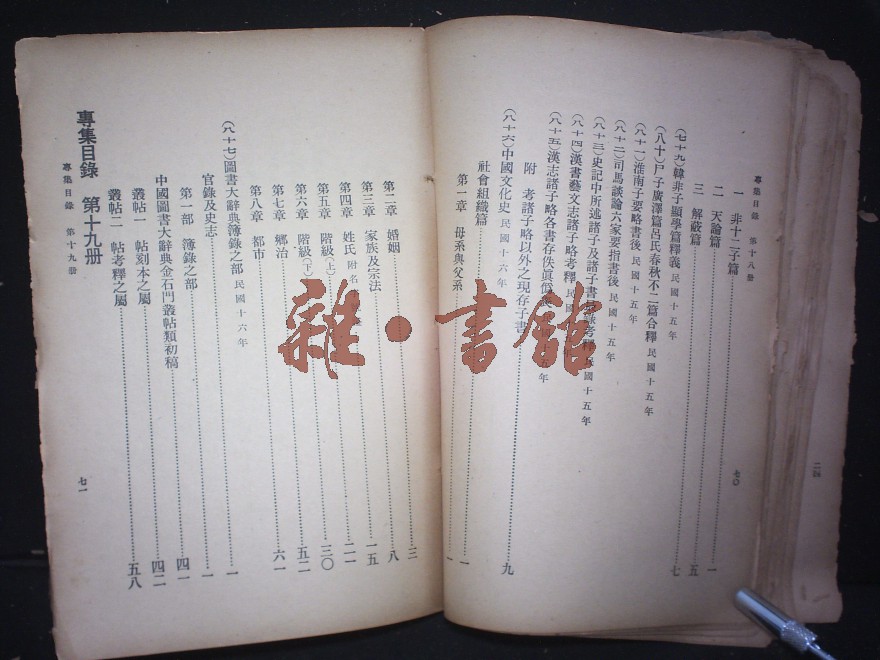 專集目錄 第十八册
七〇
一 非十二子篇……一
二 天論篇……五
三 解蔽篇……七
(七十九)韓非子顯學篇釋義 民國十五年
(八十)尸子廣澤篇呂氏春秋不二篇合釋 民國十五年
(八十一)淮南子要略書後 民國十五年
(八十二)司馬談論六家要指書後 民國十五年
(八十三)史記中所述諸子及諸子書 考釋 民國十五年
(八十四)漢書藝文志諸子略考釋 民國 年
(八十五)漢志諸子略各書存佚眞僞 年
附 考諸子略以外之現存子書……九
(八十六)中國文化史 民國十六年
社會組織篇……一
第一章 母系與父系……一
第二章 婚姻……三
第三章 家族及宗法……八
第四章 姓氏 附名……一五
第五章 階級(上)……二一
第六章 階級(下)……三〇
第七章 鄉治……五二
第八章 都市……六一
(八十七)圖書大辭典簿錄之部 民國十六年
官錄及史志……一
第一部 簿錄之部……一
中國圖書大辭典金石門叢帖類初稿……四一
叢帖一 帖刻本之屬……四二
叢帖二 帖考釋之屬……五八
專集目錄 第十九册
專集目錄 第十九册
七一
雜·書館